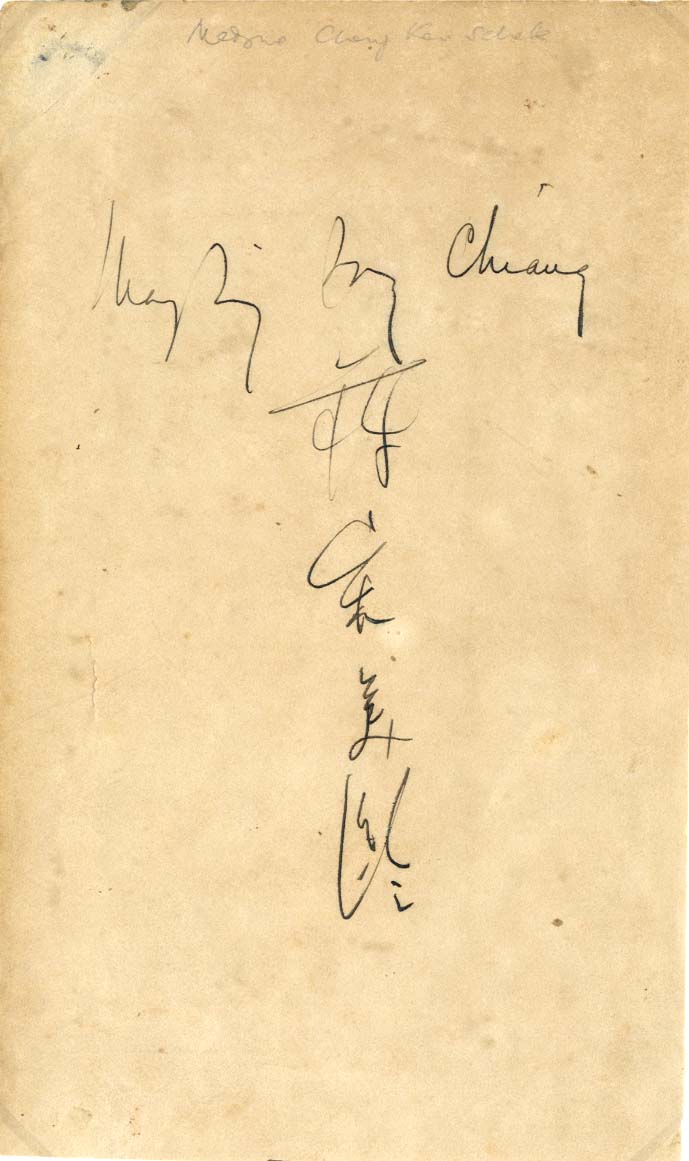 Madame Chiang Kai Shek
Mayling Soong Chiang
蔣
宋
美
齡